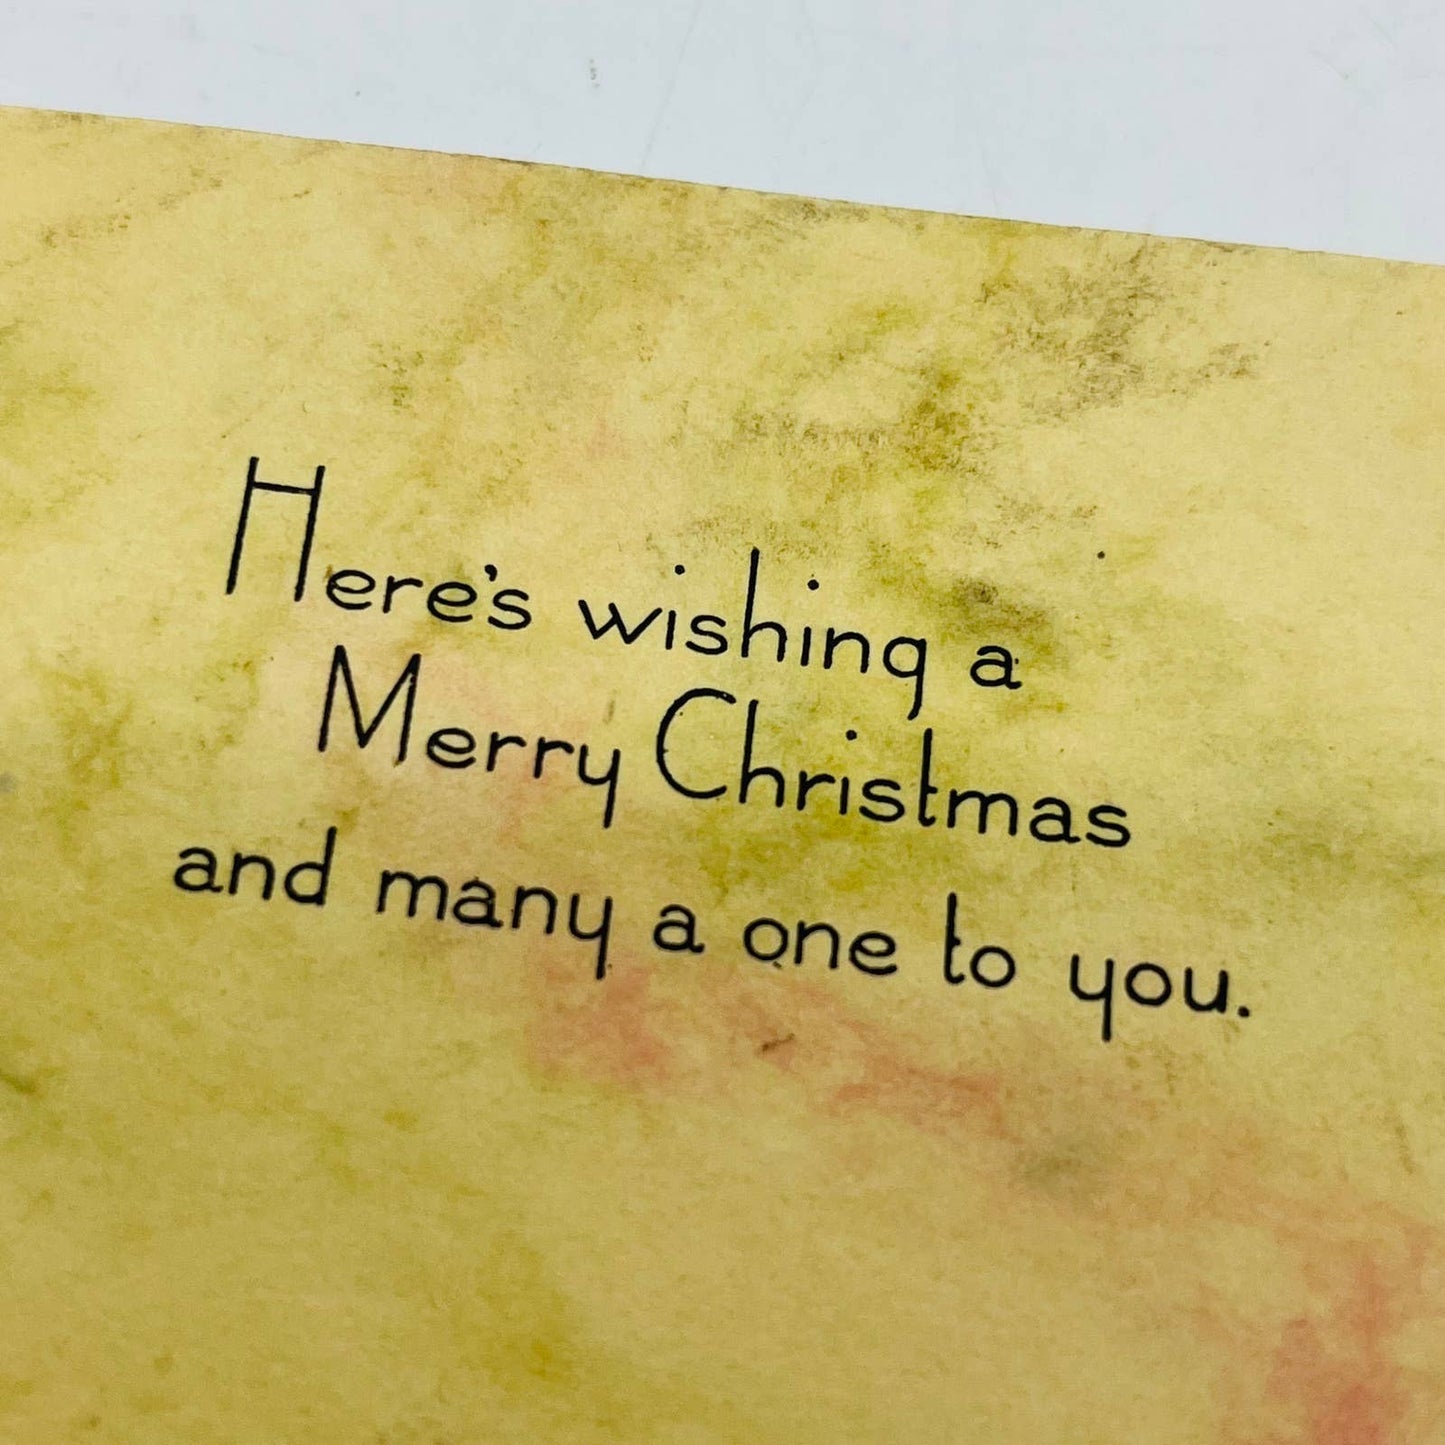 Here's wishing a
Merry Christmas
and many a one to you.